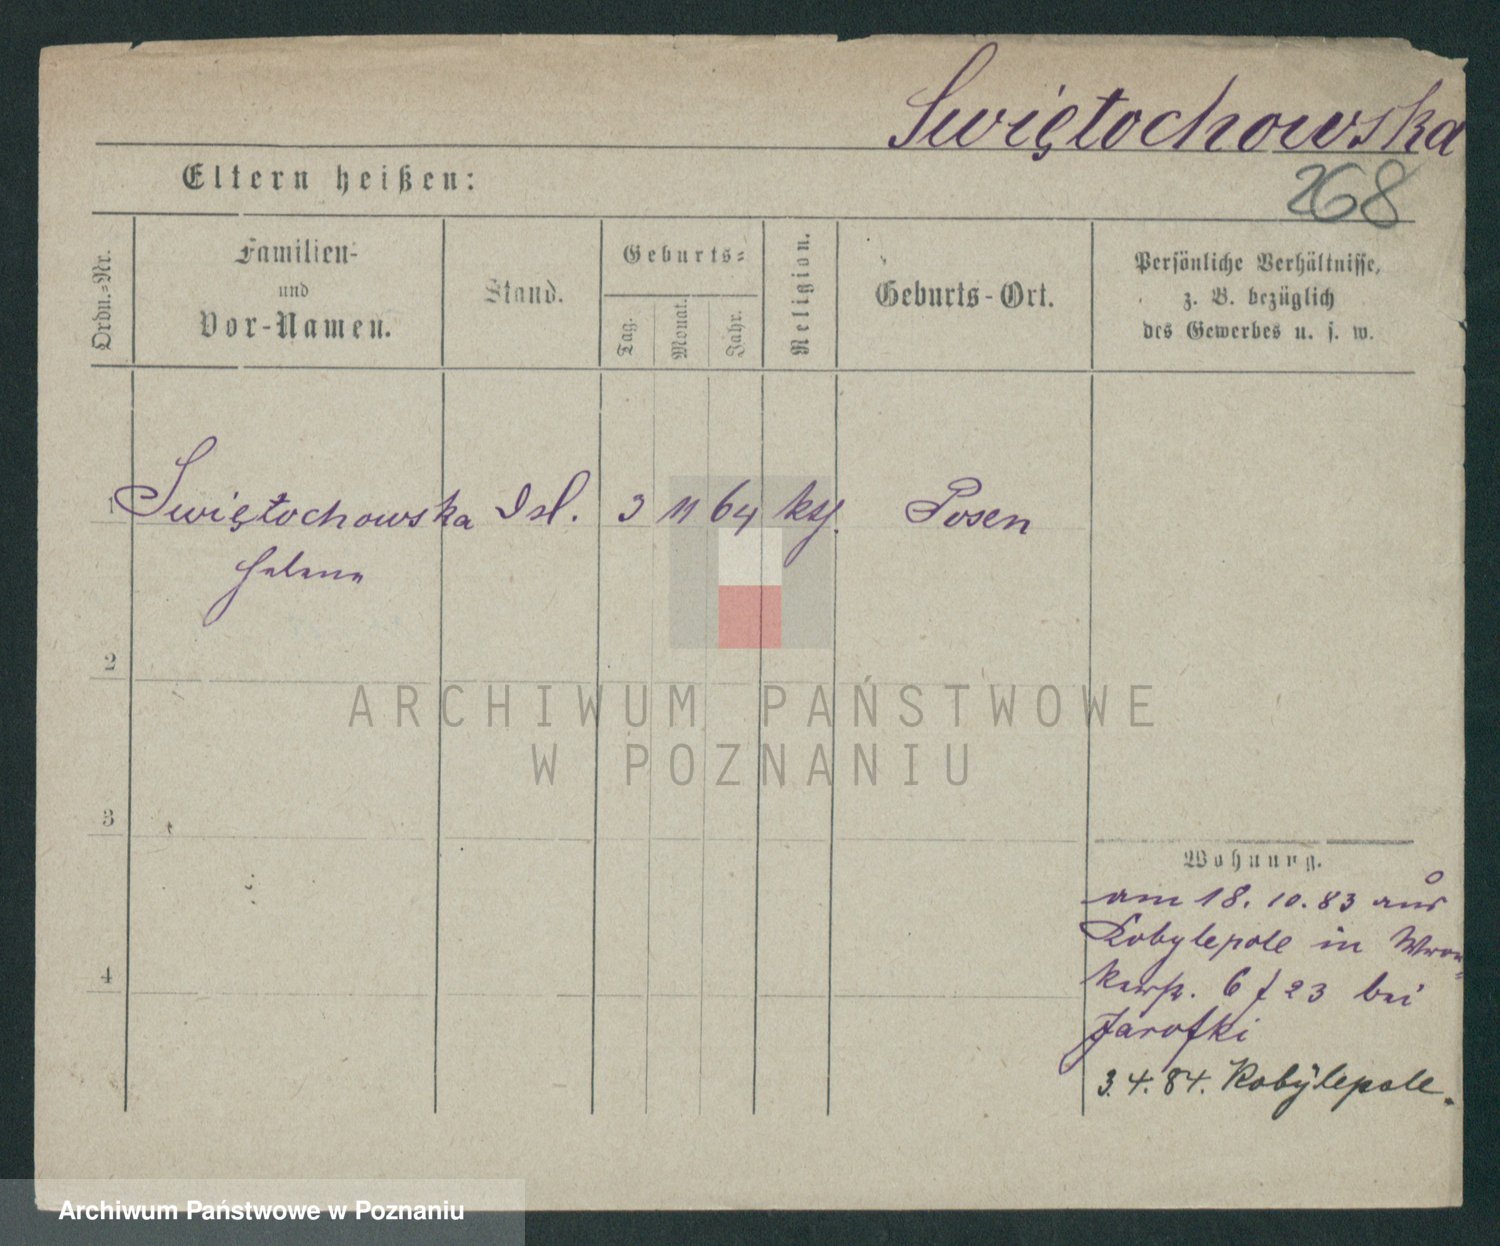 Swiętochowska
268
Eltern heißen:
Ordn.-Nr.
Familien-
und
Vor-Namen.
Stand.
Geburts-
Tag.
Monat.
Jahr.
Religion.
Geburts-Ort.
Persönliche Verhältnisse,
z. B. bezüglich
des Gewerbes u. s. w.
1 Swiętochowska 3 11 64 kth. Posen
Helene
2
ARCHIWUM PAŃSTWOWE
W POZNANIU
3
Wohnung.
am 18. 10. 83 aus
Kobylepole in Wron-
4
kerstr. 6 f 23 bei
3. 4. 84. Kobylepole.
Archiwum Państwowe w Poznaniu